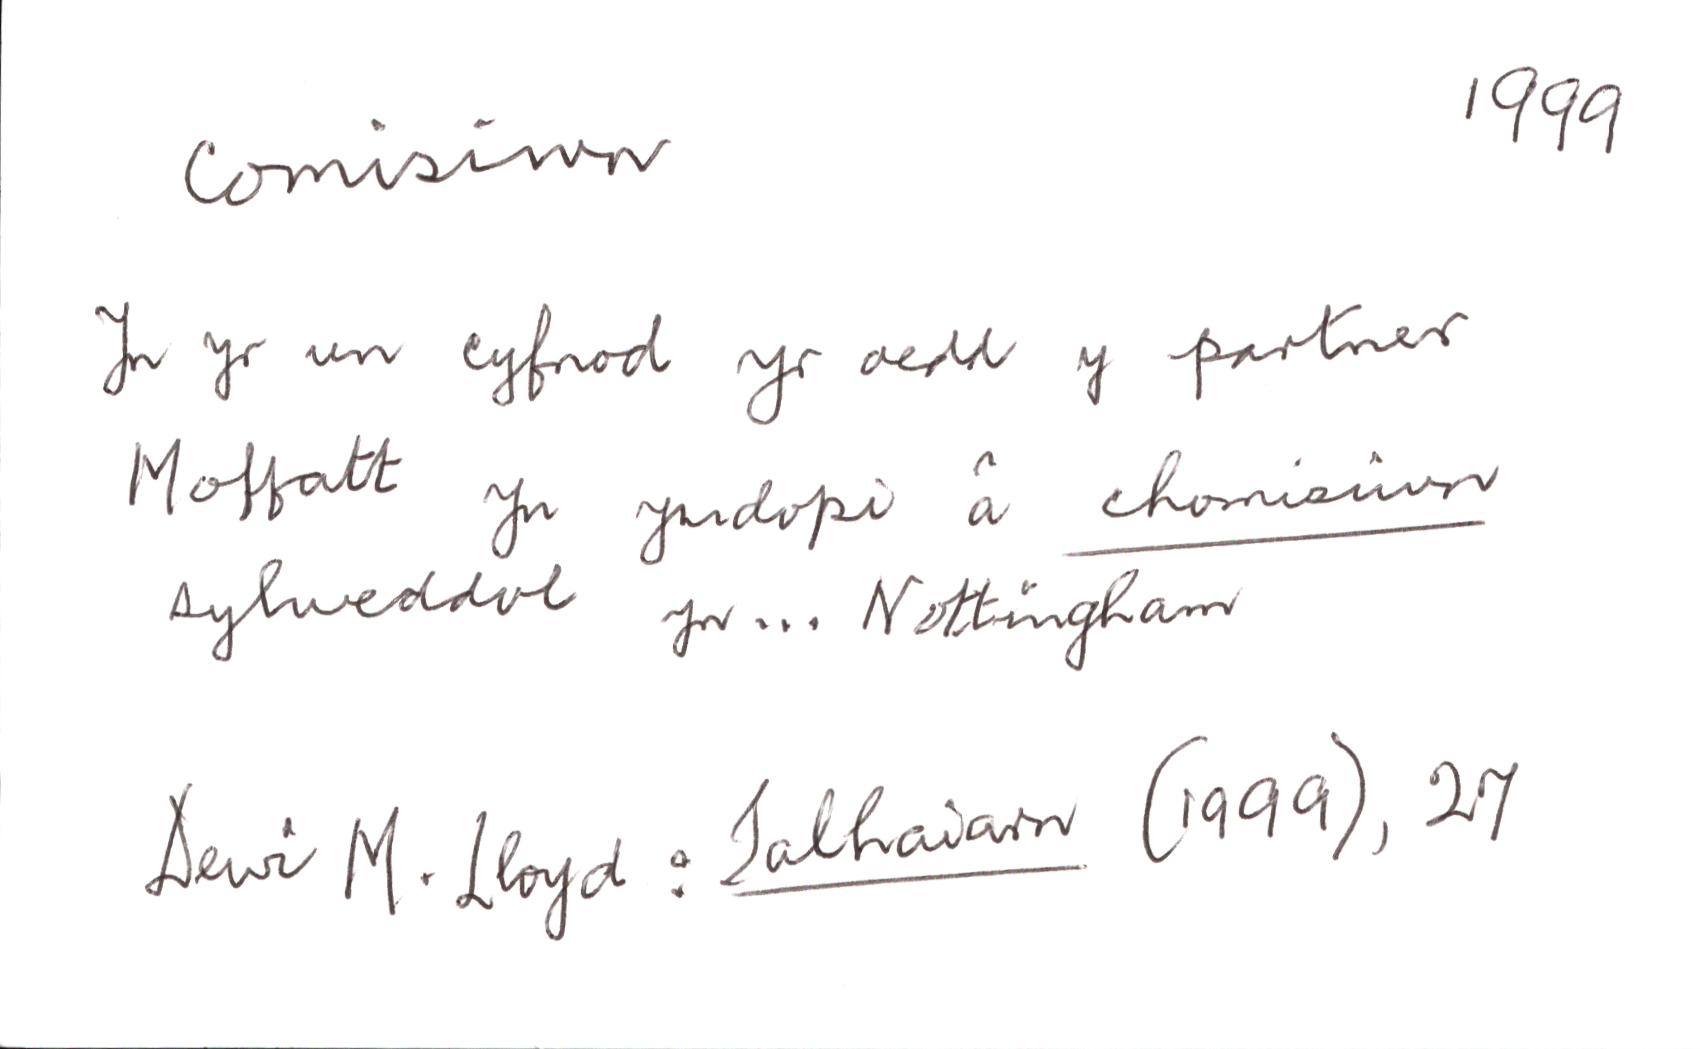 1999
Comisiwn
Yn yr un cyfnod yr oedd y partner
Moffatt yn ymdopi â chomisiwn
sylweddol yn... Nottingham
Dewi M. Lloyd : Talhaiarn (1999), 27